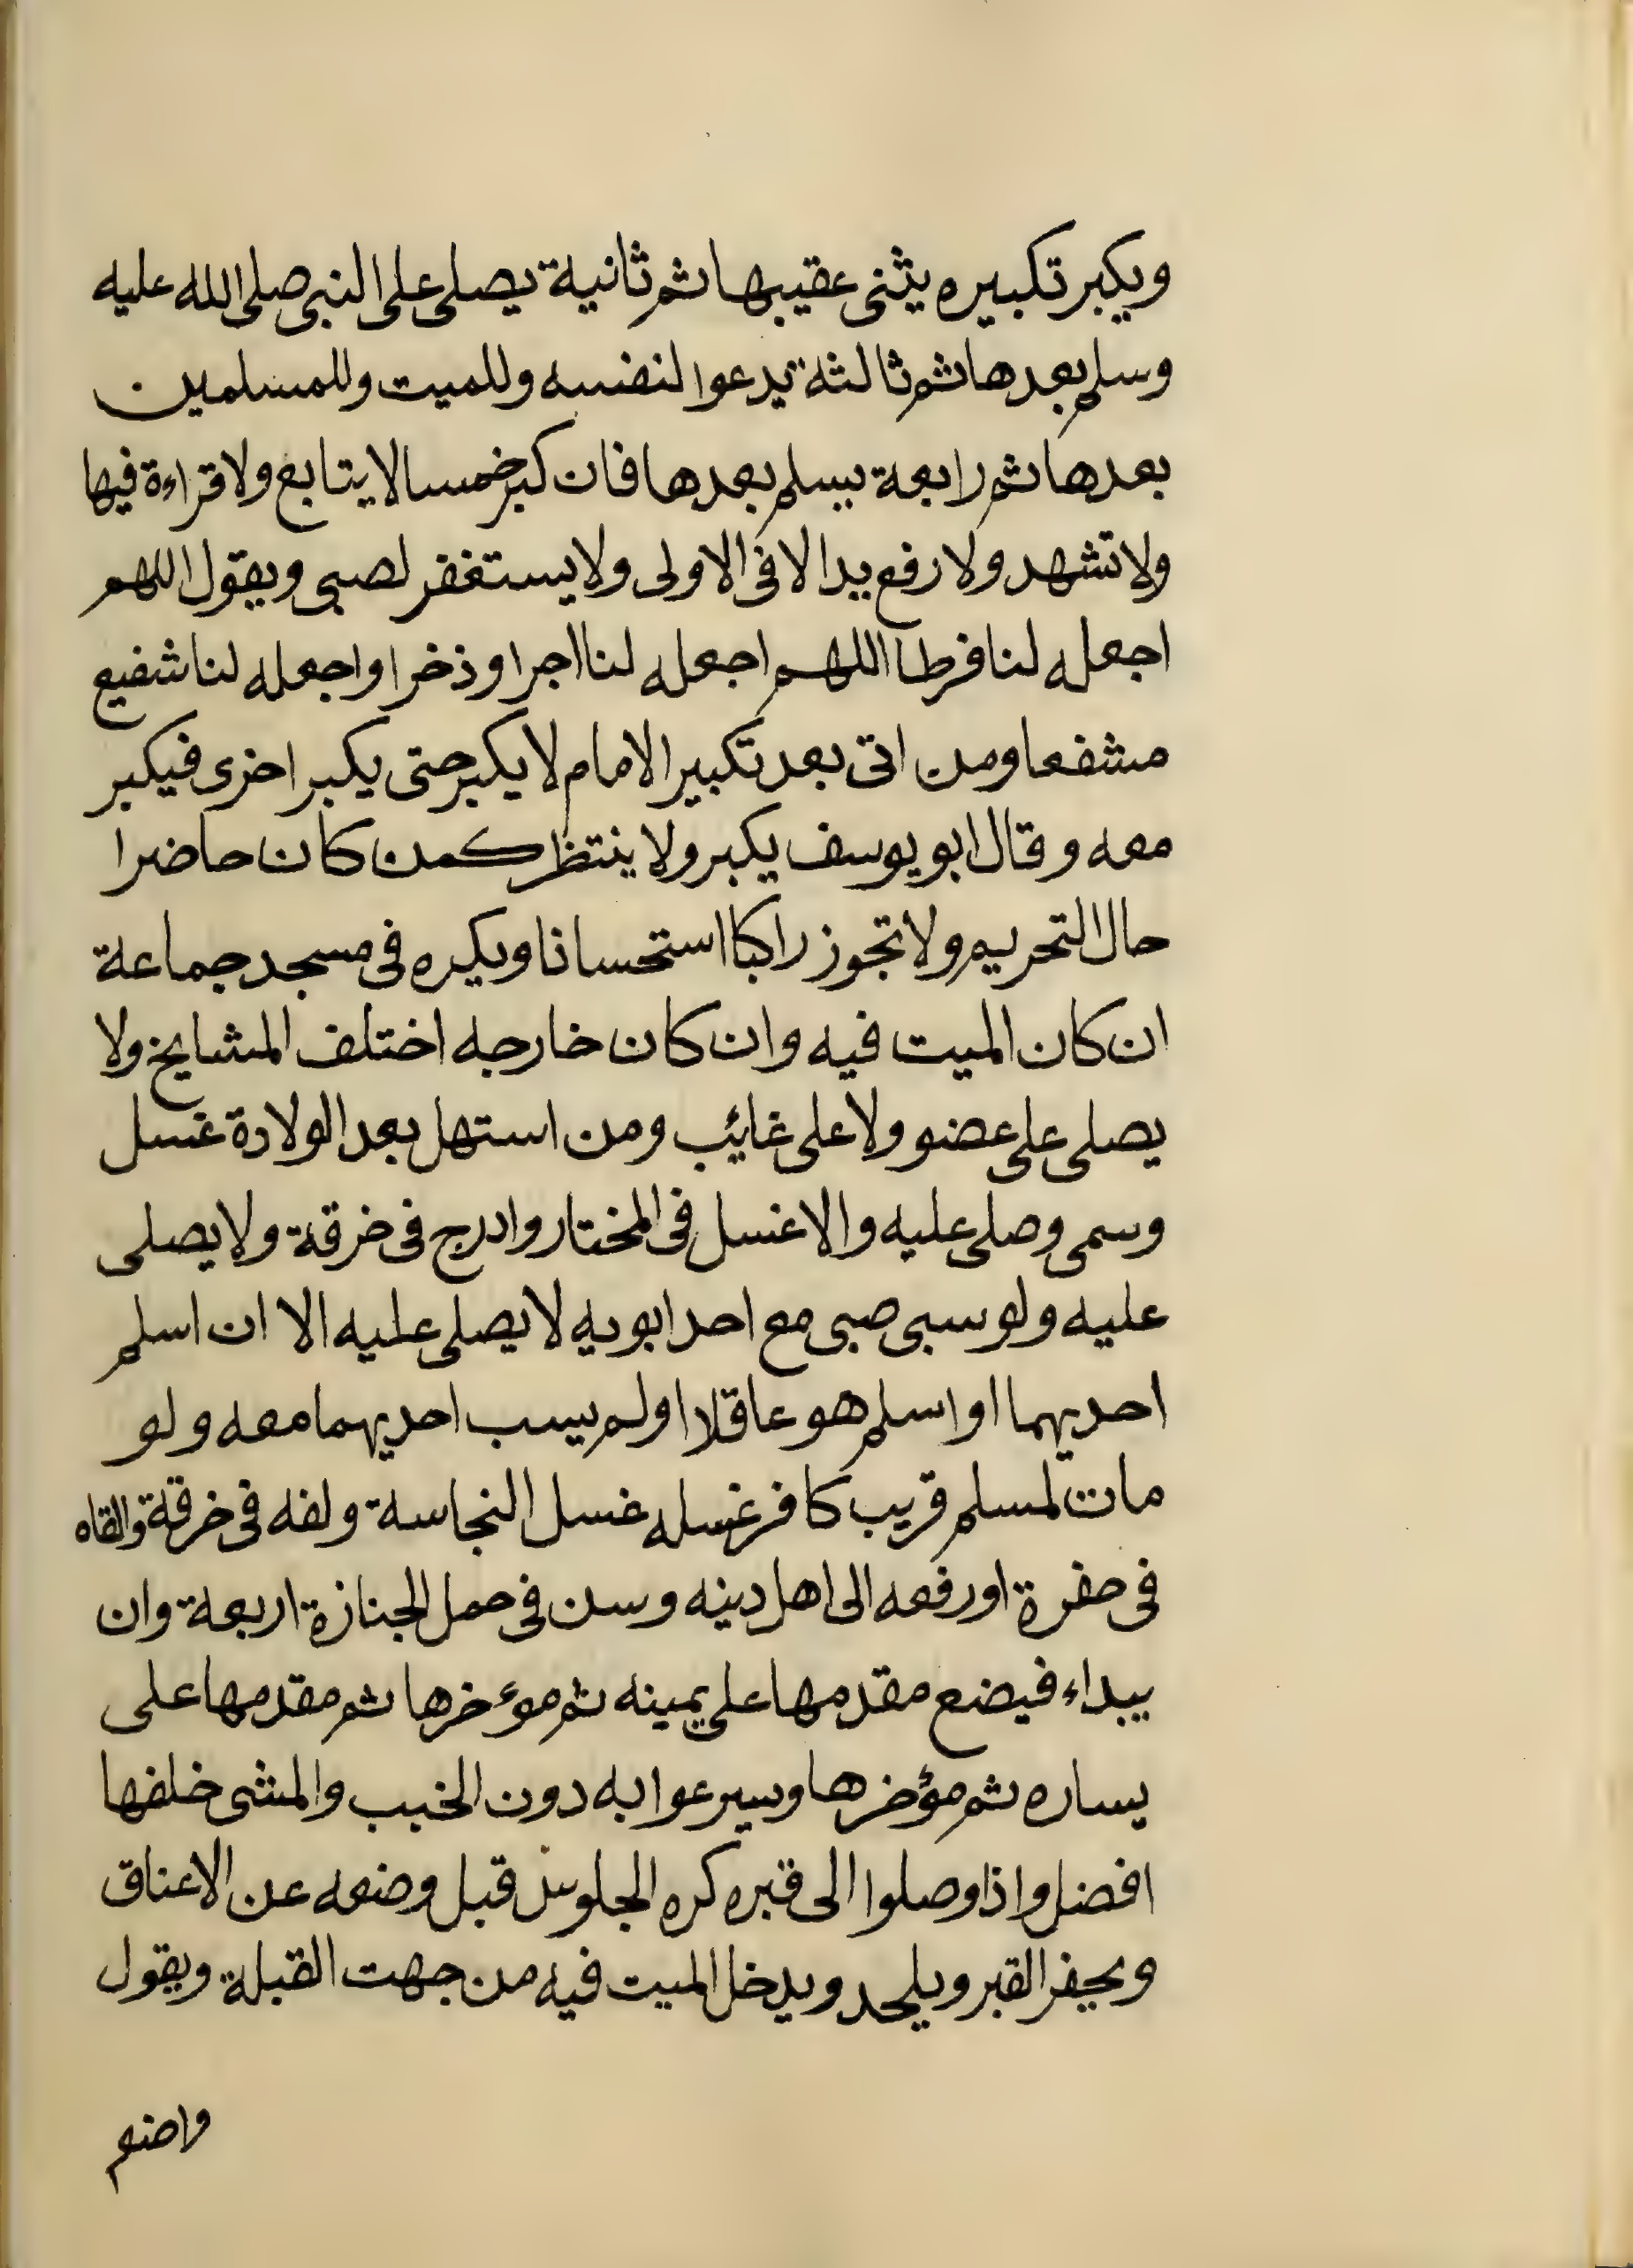 ويكبر تكبيره يثنى عقيبها ثم ثانية يصلى على النبى صلى الله عليه
وسلم بعدها ثم ثالثة يدعوا لنفسه وللميت وللمسلمين
بعدها ثم رابعة يسلم بعدها فان كبر خمسا لا يتابع ولا قراءة فيها
ولا تشهد ولا رفع يد الا فى الاولى ولا يستغفر لصبى ويقول اللهم
اجعله لنا فرطا اللهم اجعله لنا اجرا وذخرا واجعله لنا شفيع
مشفعا ومن اتى بعد تكبير الامام لا يكبر حتى يكبر اخرى فيكبر
معه وقال ابو يوسف يكبر ولا ينتظر كمن كان حاضرا
حال التحريم ولا تجوز راكبا استحسانا ويكره فى مسجد جماعة
ان كان الميت فيه وان كان خارجه اختلف المشايخ ولا
يصلى على عضو ولا على غائب ومن استهل بعد الولادة غسل
وسمى وصلى عليه والا غسل فى المختار وادرج فى خرقة ولا يصلى
عليه ولو سبى صبى مع احد ابويه لا يصلى عليه الا ان اسلم
احديهما او اسلم هو عاقلا او لم يسب احديهما معه ولو
مات لمسلم قريب كافر غسله غسل النجاسة ولفه فى خرقة والقاه
فى حفرة او رفعه الى اهل دينه وسن فى حمل الجنازة اربعة وان
يبداء فيضع مقدمها على يمينه ثم موءخرها ثم مقدمها على
يساره ثم مؤخرها ويسرعوا به دون الخبب والمشى خلفها
افضل واذا وصلوا الى قبره كره الجلوس قبل وضعه عن الاعناق
ويحفر القبر ويلحد ويدخل الميت فيه من جهت القبلة ويقول
واضع